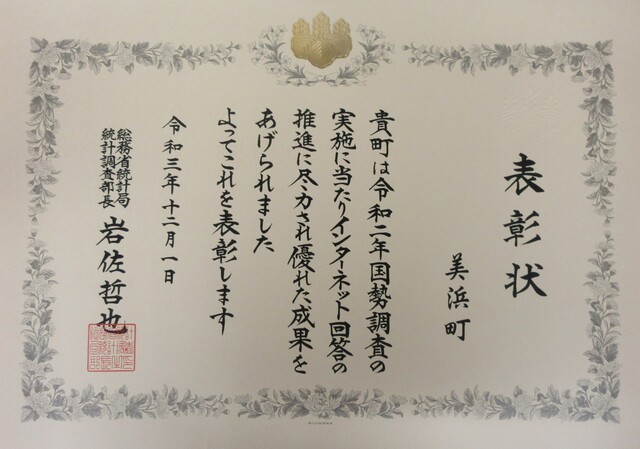 表彰状
美浜町
貴町は令和二年国勢調査の
実施に当たりインターネット回答の
推進に尽力され優れた成果を
あげられました
よってこれを表彰します
令和三年十二月一日
総務省統計局
統計調査部長
岩佐哲也